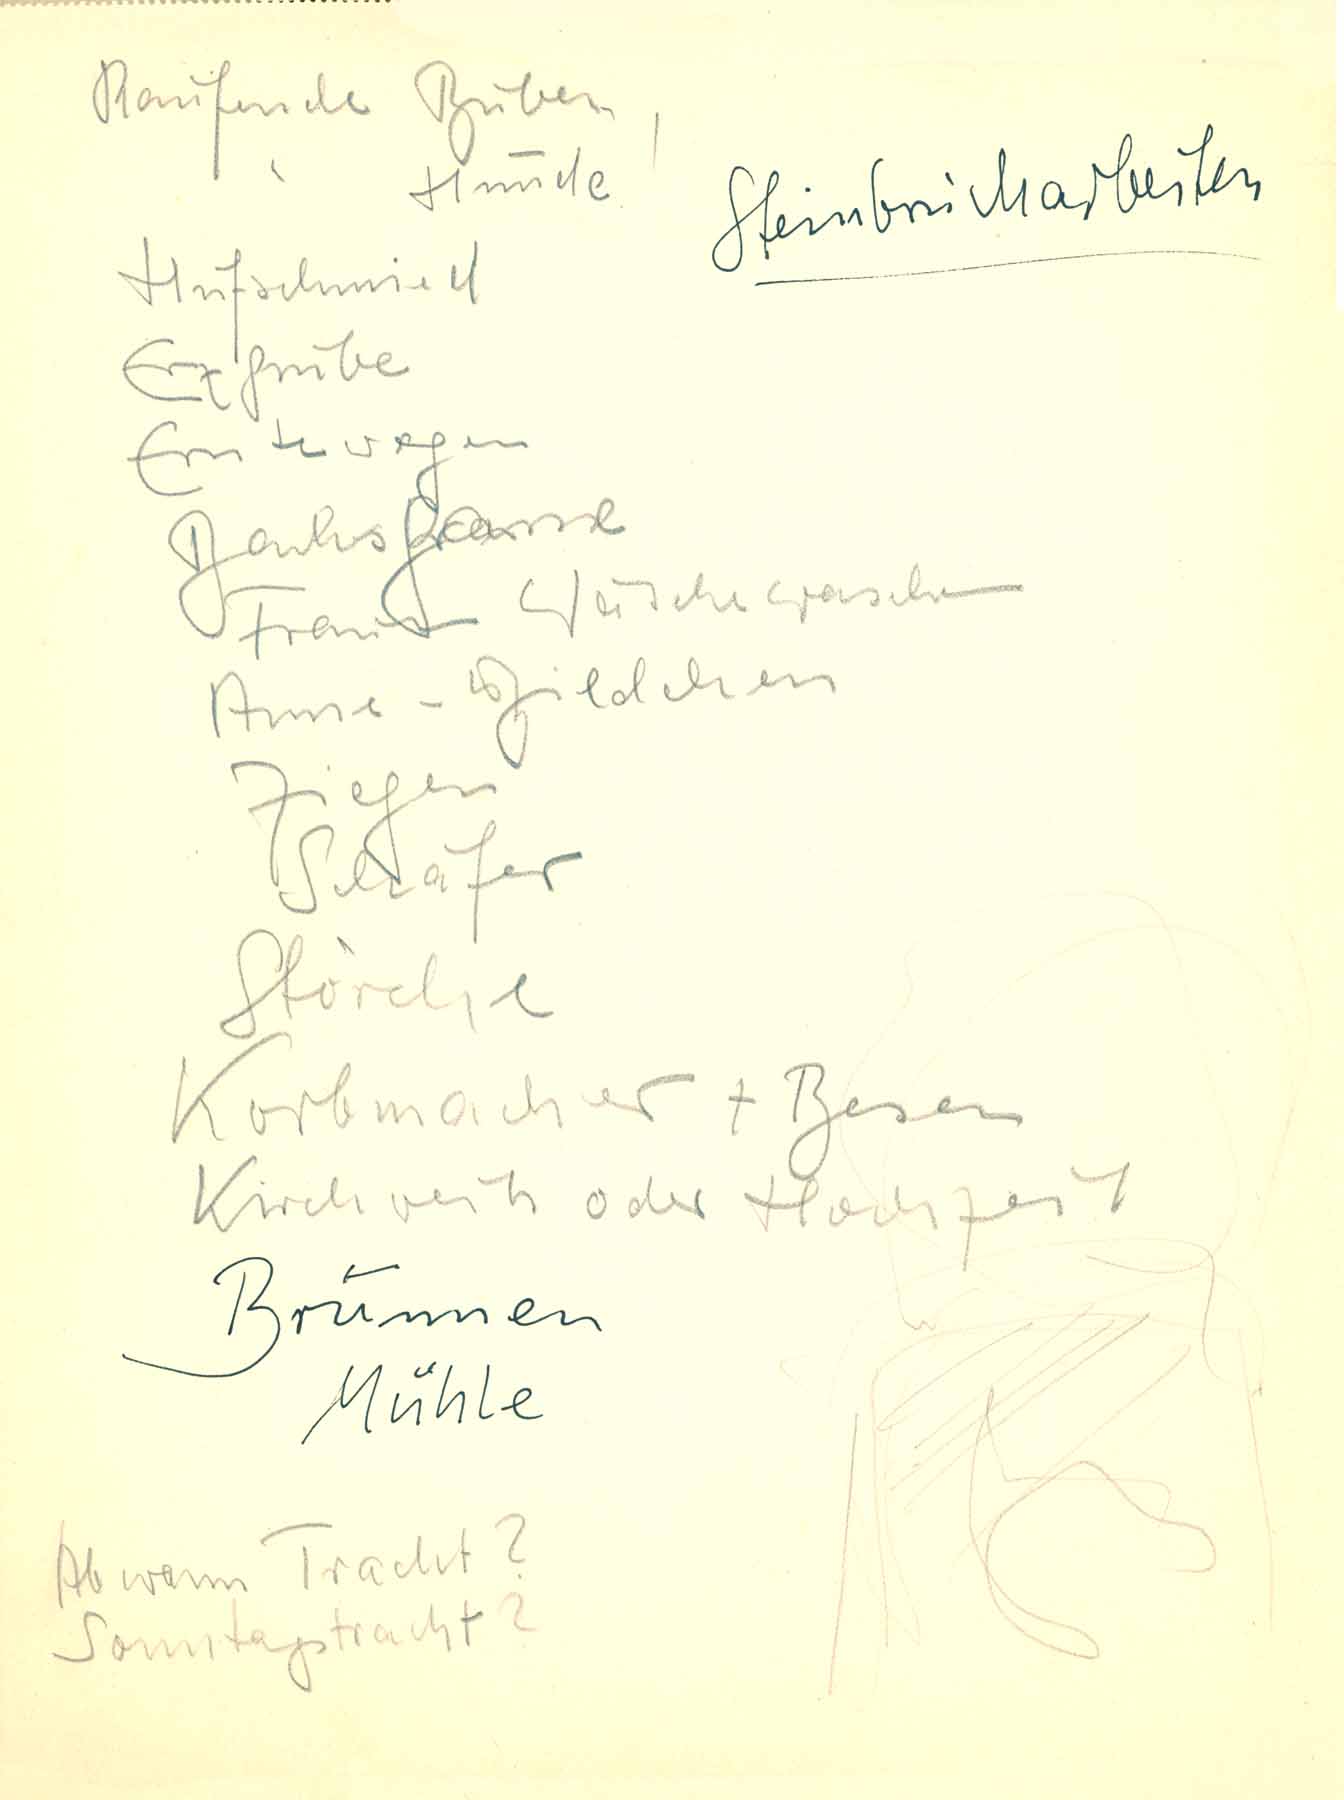 Raufende Buben,
" Hunde
Steinbrucharbeiten
Hufschmied
Erzgrube
Erntewagen
Frau Wäschewaschen
Anne-Bildchen
Ziegen
Schäfer
Störche
Korbmacher + Besen
Kirchweih oder Hochzeit
Brunnen
Mühle
Ab wann Tracht?
Sonntagstracht?